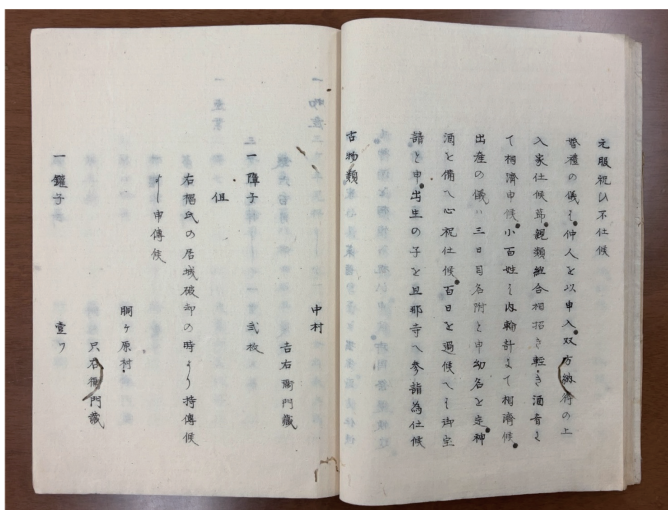 元服祝ひ不仕候
婚禮の儀ハ仲人を以申入双方納得の上
入家仕候節親類組合相招き軽き酒肴ニ
て相濟申候小百姓ハ内輪計ニて相濟候
出産の儀ハ三日目名附と申幼名を定神
酒を備へ心祝仕候百日を過候へハ御
詣と申出生の子を旦那寺へ参詣為仕候
古物類
中村
吉右衛門藏
一障子 弐枚
但
右 氏の居城破却の時より持傳候
よし申傳候
胴ヶ原村
只右衛門藏
一鑵子 壹ツ